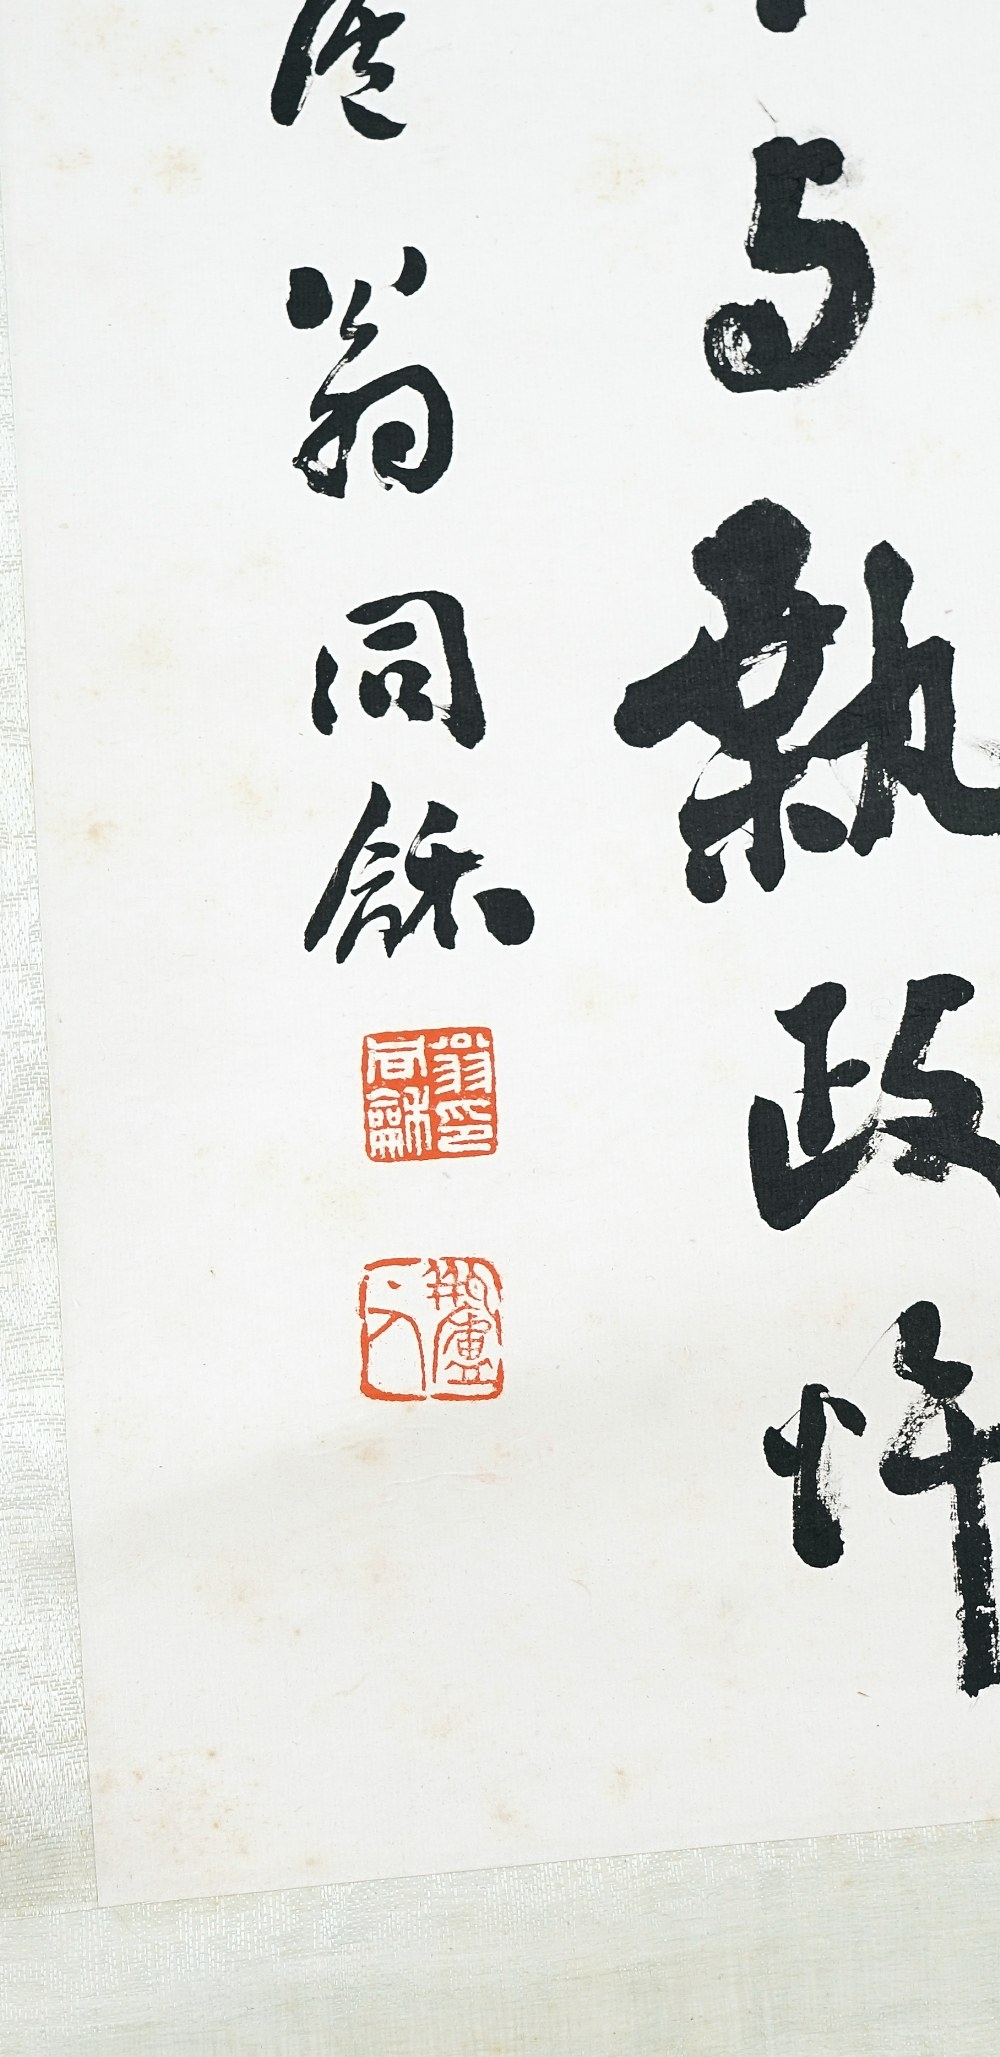 与執政忤
翁同龢
翁同龢印